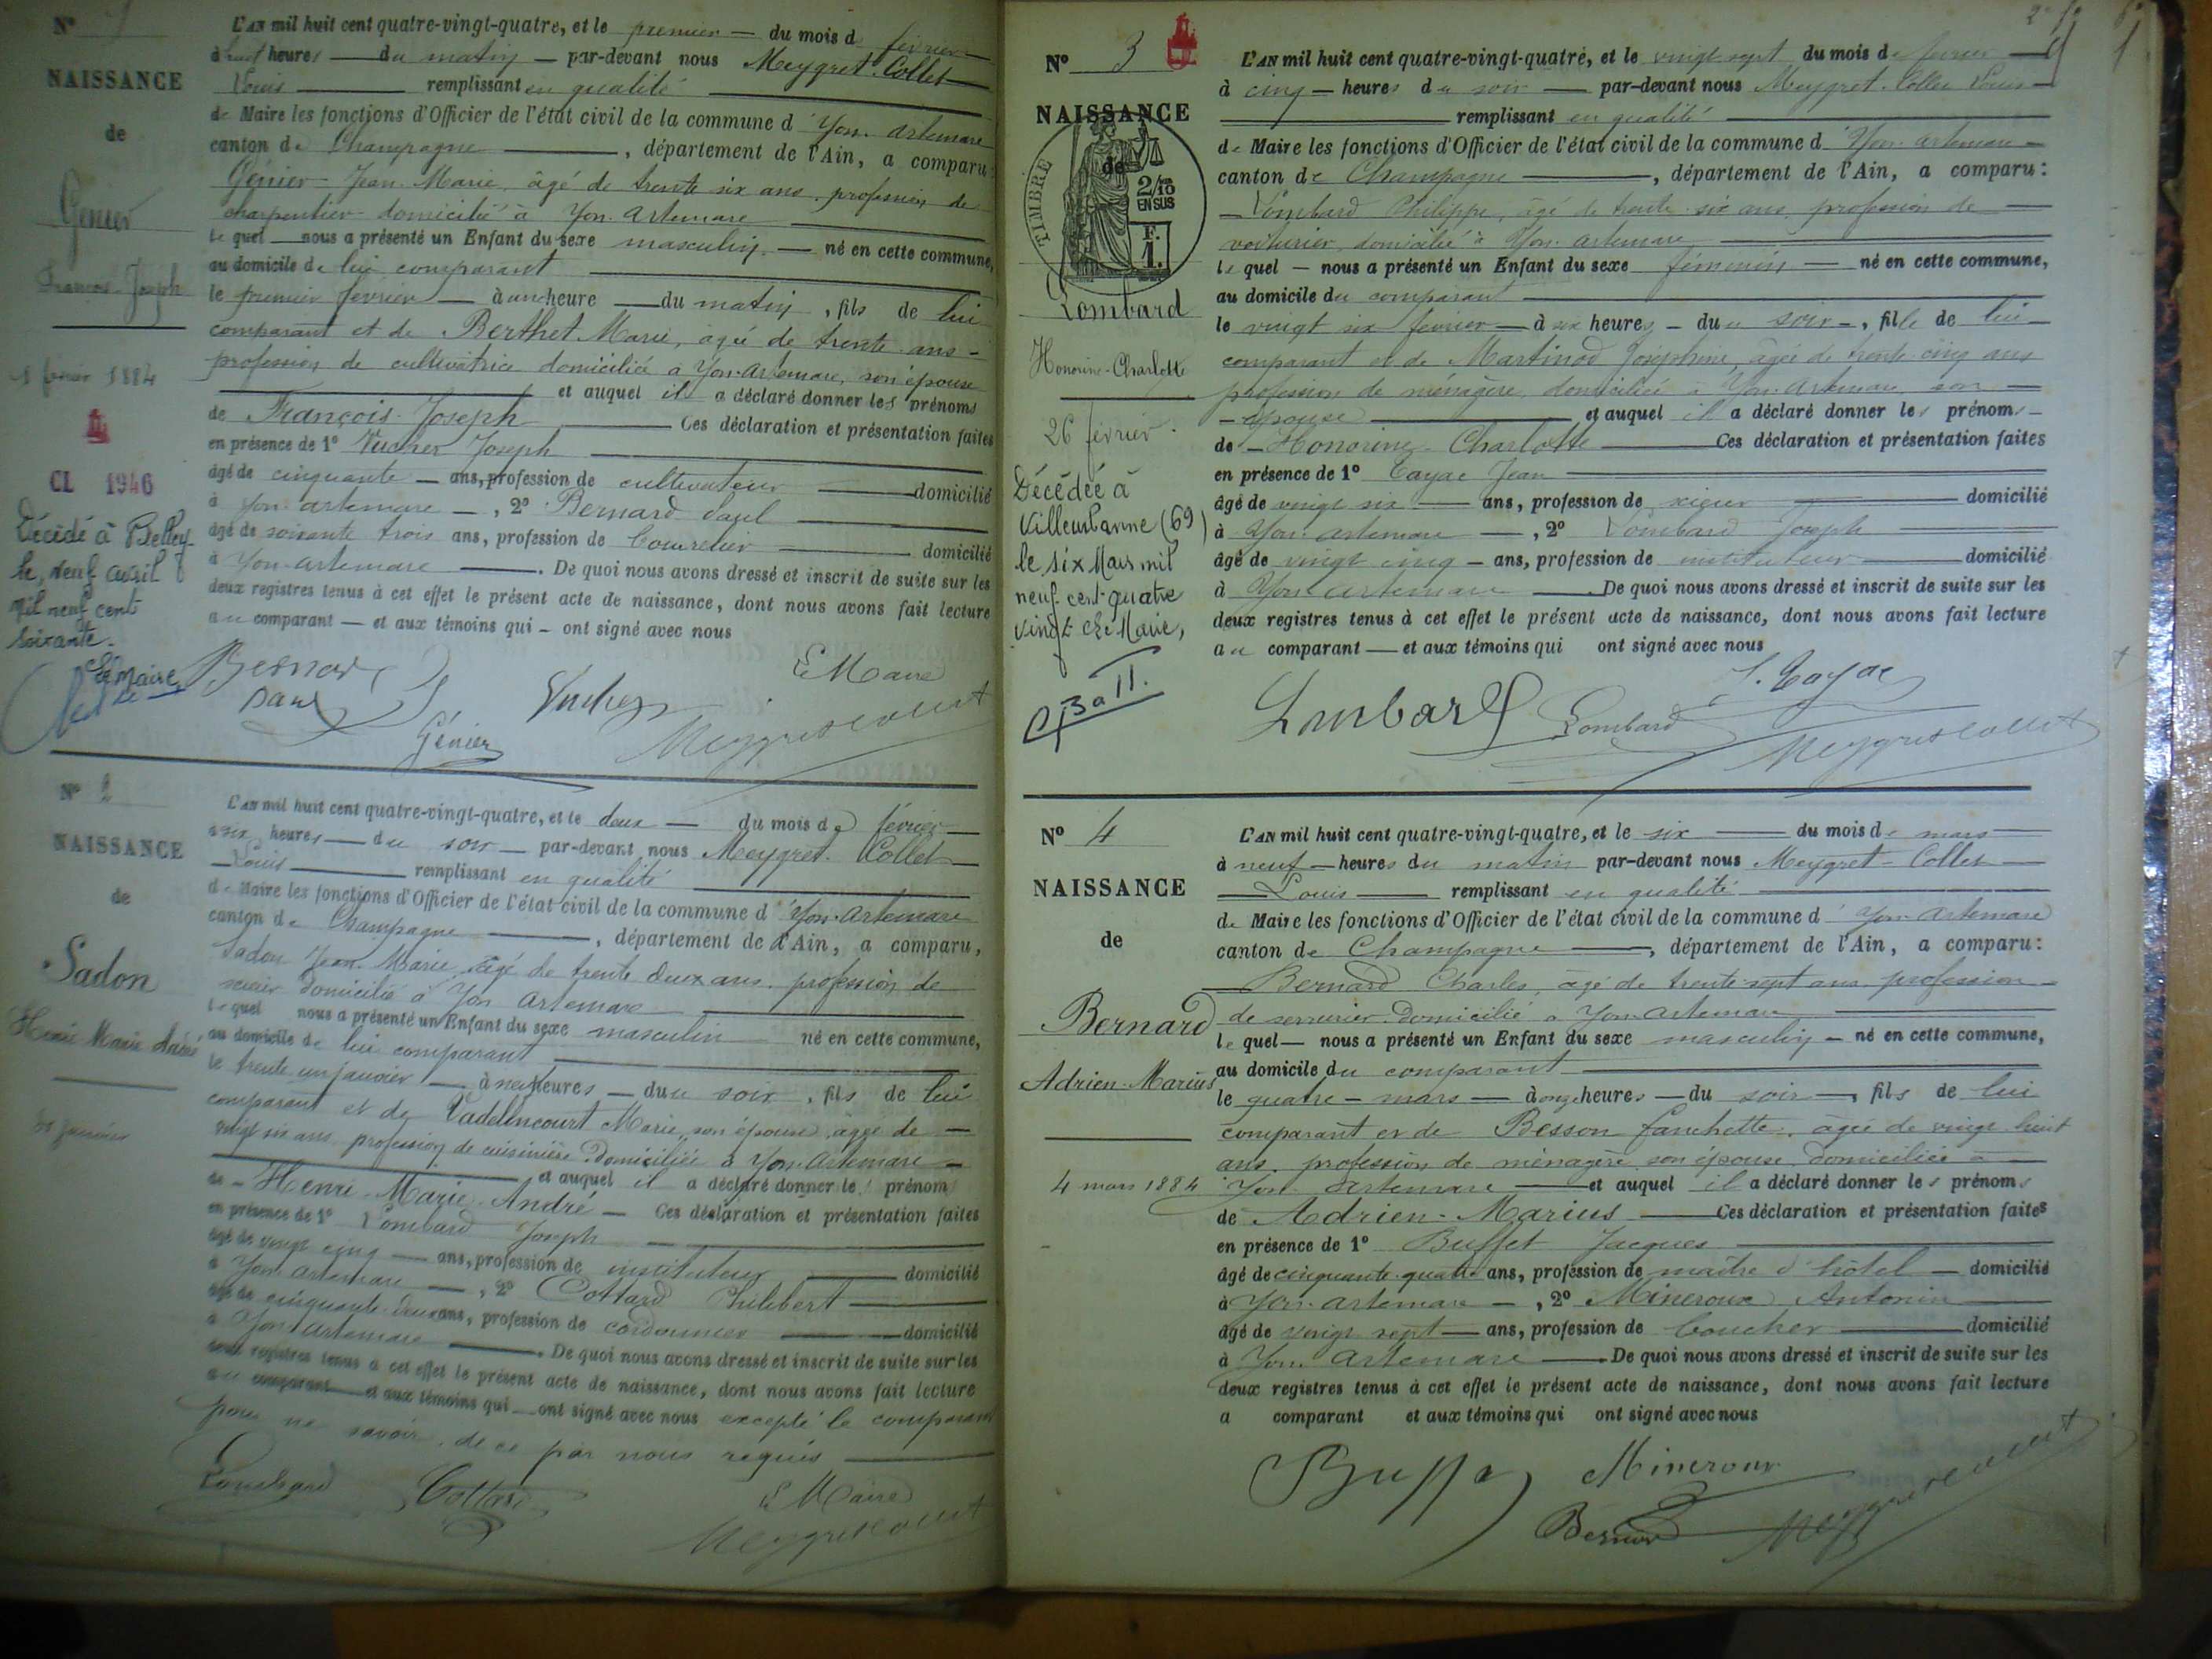 Nº 1
NAISSANCE
de
Génier
François Joseph
1 février 1884
CL 1946
Décédé à Belley
le neuf avril
mil neuf cent
soixante.
Le Maire
L'AN mil huit cent quatre-vingt-quatre, et le premier — du mois d février
à huit heures — du matin — par-devant nous Meygret-Collet
Louis — remplissant en qualité
de Maire les fonctions d'Officier de l'état civil de la commune d'Yon-artemare
canton de Champagne —, département de l'Ain, a comparu :
Génier Jean-Marie, âgé de trente six ans, profession de
charpentier domicilié à Yon-artemare
lequel — nous a présenté un Enfant du sexe masculin — né en cette commune,
au domicile de lui comparant
le premier février — à une heure — du matin, fils de lui
comparant et de Berthet Marie, agée de trente ans —
profession de cultivatrice domiciliée à Yon-artemare, son épouse
et auquel il a déclaré donner les prénoms
de François-Joseph — Ces déclaration et présentation faites
en présence de 1º Vucher Joseph
âgé de cinquante — ans, profession de cultivateur — domicilié
à Yon-artemare —, 2º Bernard Paul
âgé de soixante trois ans, profession de bourrelier — domicilié
à Yon-artemare —. De quoi nous avons dressé et inscrit de suite sur les
deux registres tenus à cet effet le présent acte de naissance, dont nous avons fait lecture
au comparant — et aux témoins qui — ont signé avec nous
Le Maire
Bernard
Paul
Vucher
Génier
Meygretcollet
Nº 2
NAISSANCE
de
Sadon
Henri Marie André
31 janvier
L'AN mil huit cent quatre-vingt-quatre, et le deux — du mois de février —
à six heures — du soir — par-devant nous Meygret-Collet
Louis — remplissant en qualité
de Maire les fonctions d'Officier de l'état civil de la commune d'Yon-Artemare
canton de Champagne —, département de l'Ain, a comparu,
Sadon Jean-Marie, âgé de trente deux ans, profession de
scieur domicilié à Yon artemare
lequel nous a présenté un Enfant du sexe masculin né en cette commune,
au domicile de lui comparant
le trente un janvier — à neuf heures — du soir, fils de lui
comparant et de Marie, son épouse, âgée de —
vingt six ans, profession de cuisinière domiciliée à Yon-Artemare —
et auquel il a déclaré donner les prénoms
de — Henri-Marie-André — Ces déclaration et présentation faites
en présence de 1º Lombard Joseph
âgé de vingt cinq — ans, profession de instituteur — domicilié
à Yon artemare —, 2º Cottard Philibert
âgé de cinquante-deux ans, profession de cordonnier — domicilié
à Yon artemare —. De quoi nous avons dressé et inscrit de suite sur les
deux registres tenus à cet effet le présent acte de naissance, dont nous avons fait lecture
au comparant — et aux témoins qui — ont signé avec nous excepté le comparant
pour ne savoir, de ce par nous requis
Lombard
Cottard
Le Maire
Meygretcollet
Nº 3
NAISSANCE
de
TIMBRE
2/10
EN SUS
F.
1.
Lombard
Honorine-Charlotte
26 février.
Décédée à
Villeurbanne (69)
le six Mars mil
neuf cent-quatre
vingt
L'AN mil huit cent quatre-vingt-quatre, et le vingt sept du mois de février —
à cinq — heures du soir — par-devant nous Meygret-Collet Louis —
remplissant en qualité
de Maire les fonctions d'Officier de l'état civil de la commune d'Yon-artemare —
canton de Champagne —, département de l'Ain, a comparu :
Lombard Philippe, âgé de trente-six ans, profession de
voiturier, domicilié à Yon-artemare
lequel — nous a présenté un Enfant du sexe féminin — né en cette commune,
au domicile du comparant
le vingt six février — à six heures — du soir —, fille de lui —
comparant et de Martinod Joséphine, agée de trente-cinq ans
profession de ménagère, domiciliée à Yon-artemare, son —
— épouse — et auquel il a déclaré donner les prénoms —
de — Honorine-Charlotte — Ces déclaration et présentation faites
en présence de 1º Cayac Jean
âgé de vingt six — ans, profession de scieur — domicilié
à Yon-artemare —, 2º Lombard Joseph
âgé de vingt cinq — ans, profession de instituteur — domicilié
à Yon artemare —. De quoi nous avons dressé et inscrit de suite sur les
deux registres tenus à cet effet le présent acte de naissance, dont nous avons fait lecture
au comparant — et aux témoins qui ont signé avec nous
Lombard
Lombard
J. Cayac
Meygretcollet
Nº 4
NAISSANCE
de
Bernard
Adrien-Marius
4 mars 1884
L'AN mil huit cent quatre-vingt-quatre, et le six — du mois de mars —
à neuf — heures du matin par-devant nous Meygret-Collet —
Louis — remplissant en qualité
de Maire les fonctions d'Officier de l'état civil de la commune d'Yon-artemare
canton de Champagne —, département de l'Ain, a comparu :
Bernard Charles, âgé de trente-sept ans, profession —
de serrurier domicilié à Yon-artemare
lequel — nous a présenté un Enfant du sexe masculin — né en cette commune,
au domicile du comparant
le quatre — mars — à onze heures — du soir —, fils de lui
comparant et de Besson fanchette, agée de vingt huit
ans, profession de ménagère son épouse, domiciliée à —
Yon-artemare — et auquel il a déclaré donner les prénoms
de Adrien-Marius — Ces déclaration et présentation faites
en présence de 1º Buffet Jacques
âgé de cinquante-quatre ans, profession de maître d'hôtel — domicilié
à Yon-artemare —, 2º Mineroux Antonin
âgé de vingt sept — ans, profession de boucher — domicilié
à Yon-Artemare —. De quoi nous avons dressé et inscrit de suite sur les
deux registres tenus à cet effet le présent acte de naissance, dont nous avons fait lecture
a comparant et aux témoins qui ont signé avec nous
Buffet
Mineroux
Bernard
Meygretcollet